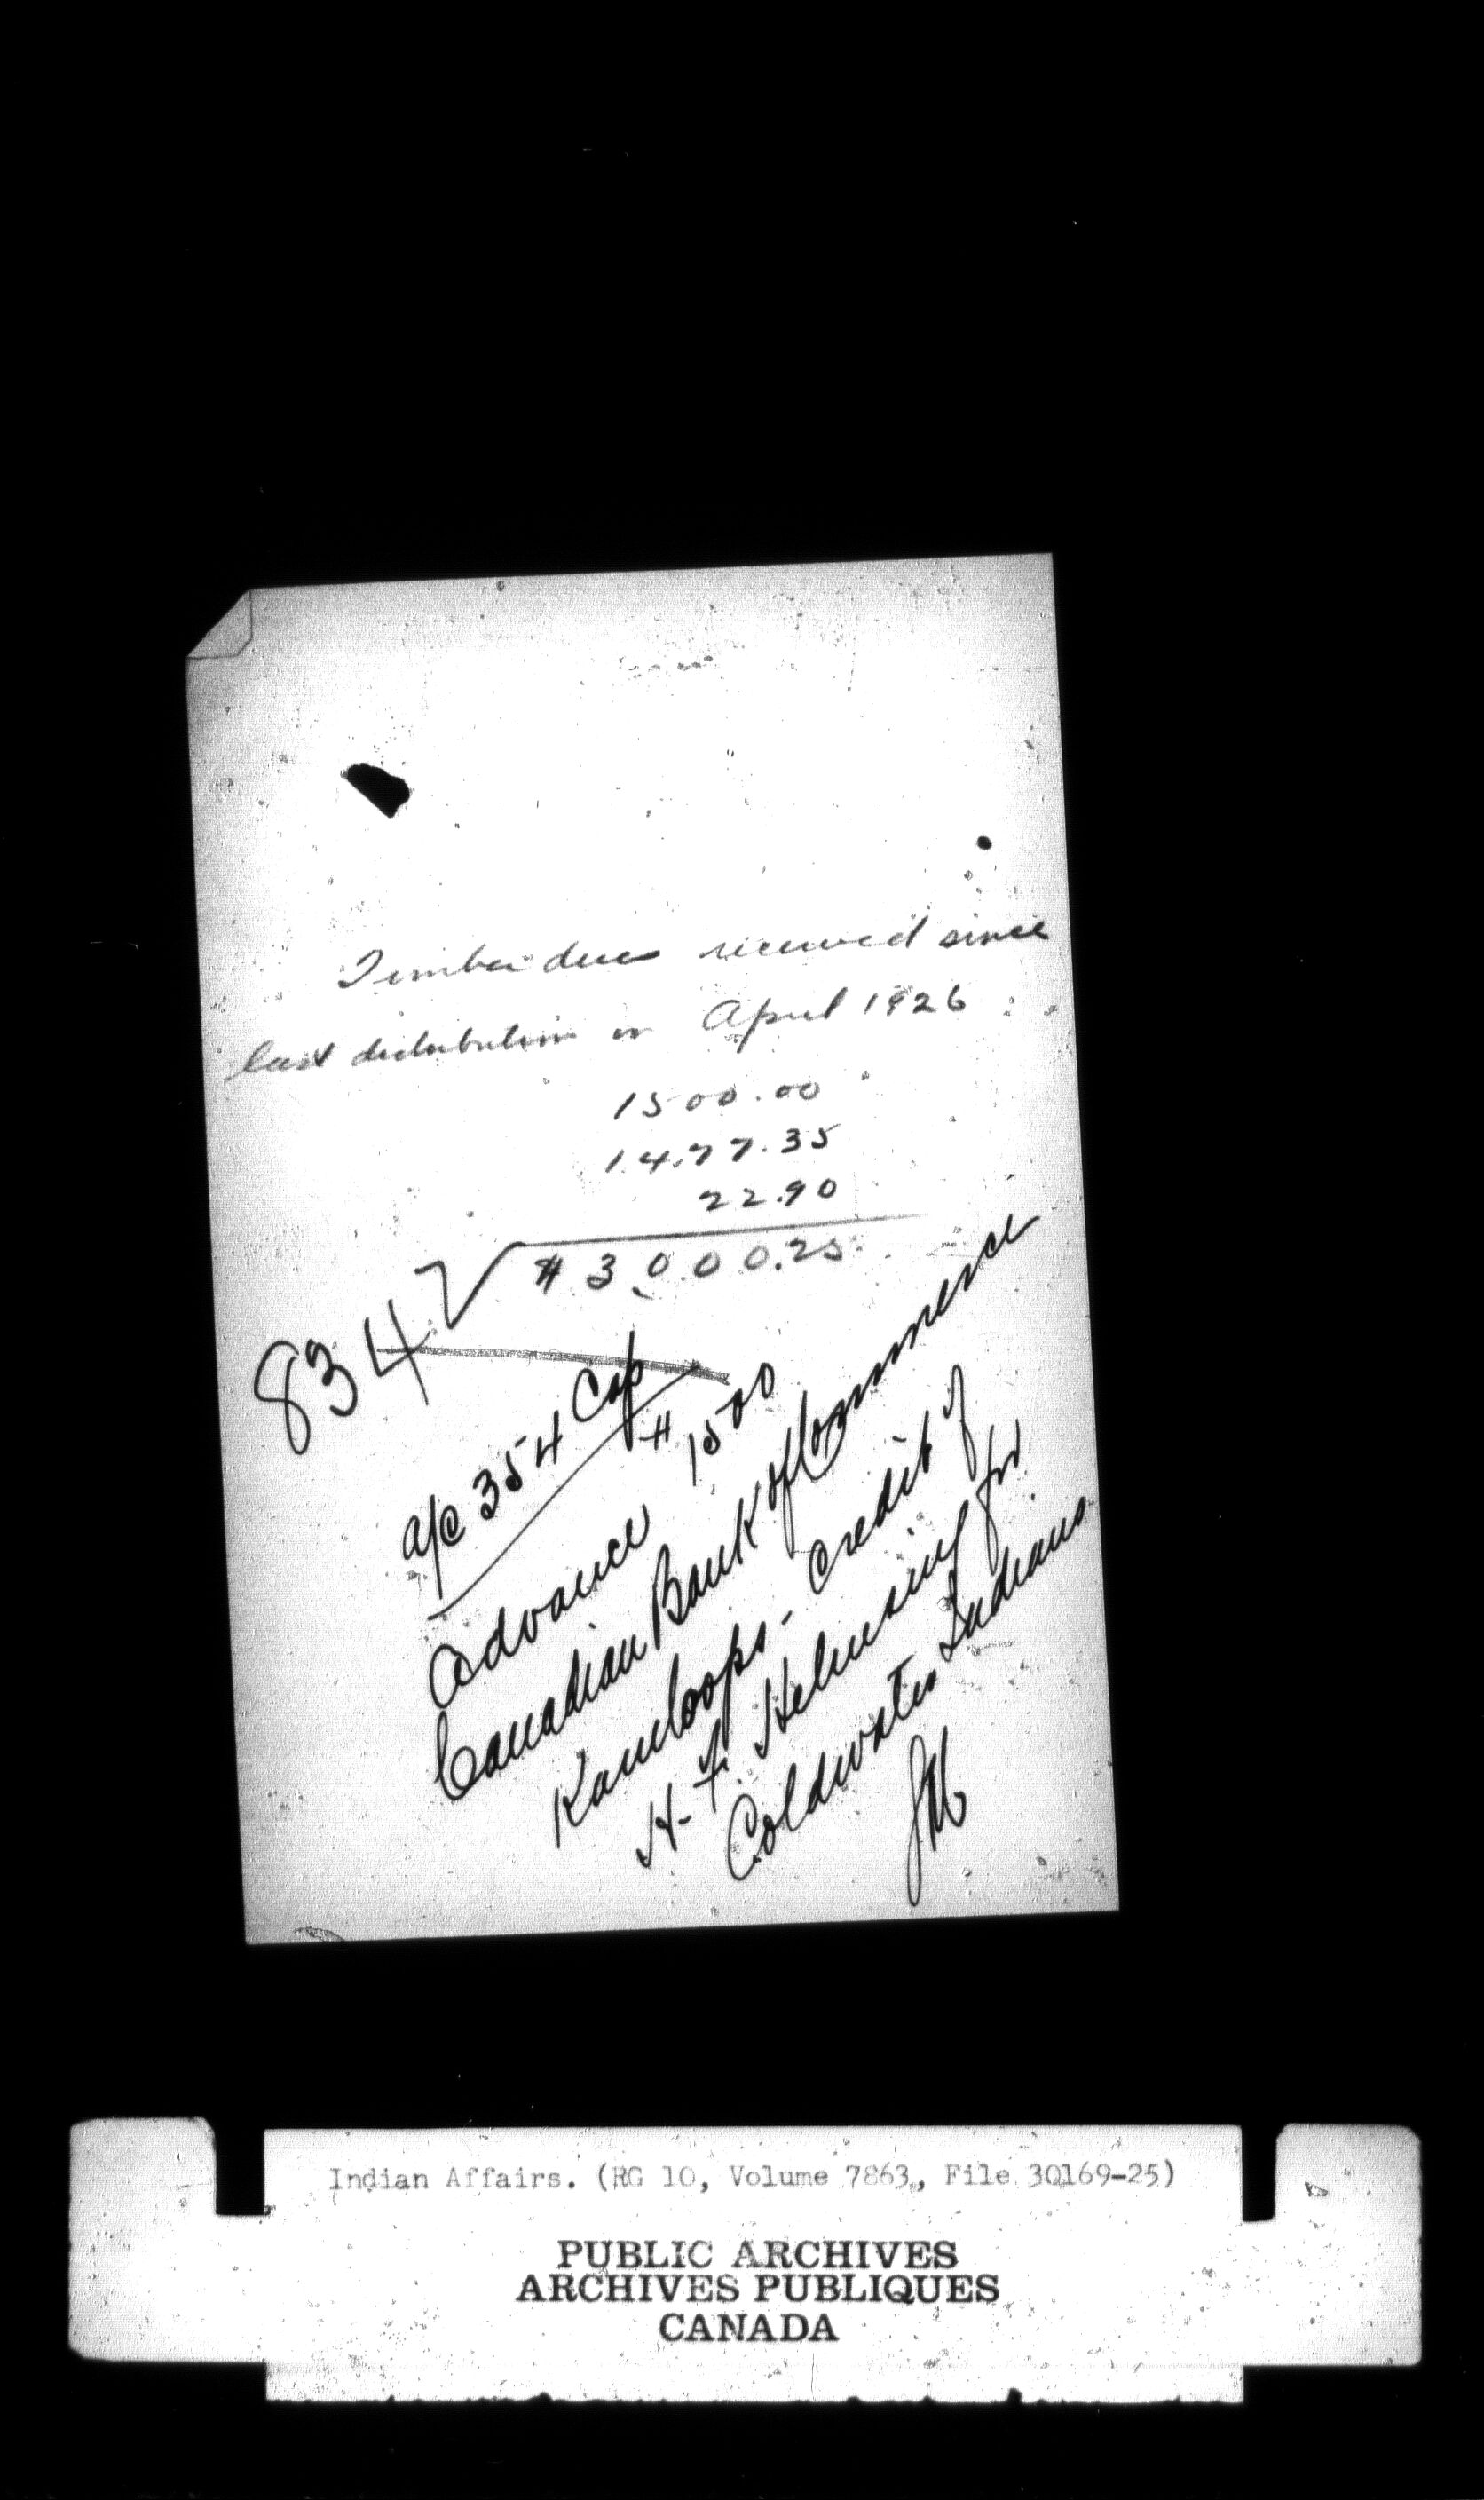 Timber dues received since
last distribution in April 1926
1500.00
1477.35
22.90
$3000.25
834
a/c 354 Cap
Advance $1500
Canadian Bank of Commerce
Kamloops - Credit of
H. F. Helmsing for
Coldwater Indians
Indian Affairs. (RG 10, Volume 7863, File 30169-25)
PUBLIC ARCHIVES
ARCHIVES PUBLIQUES
CANADA